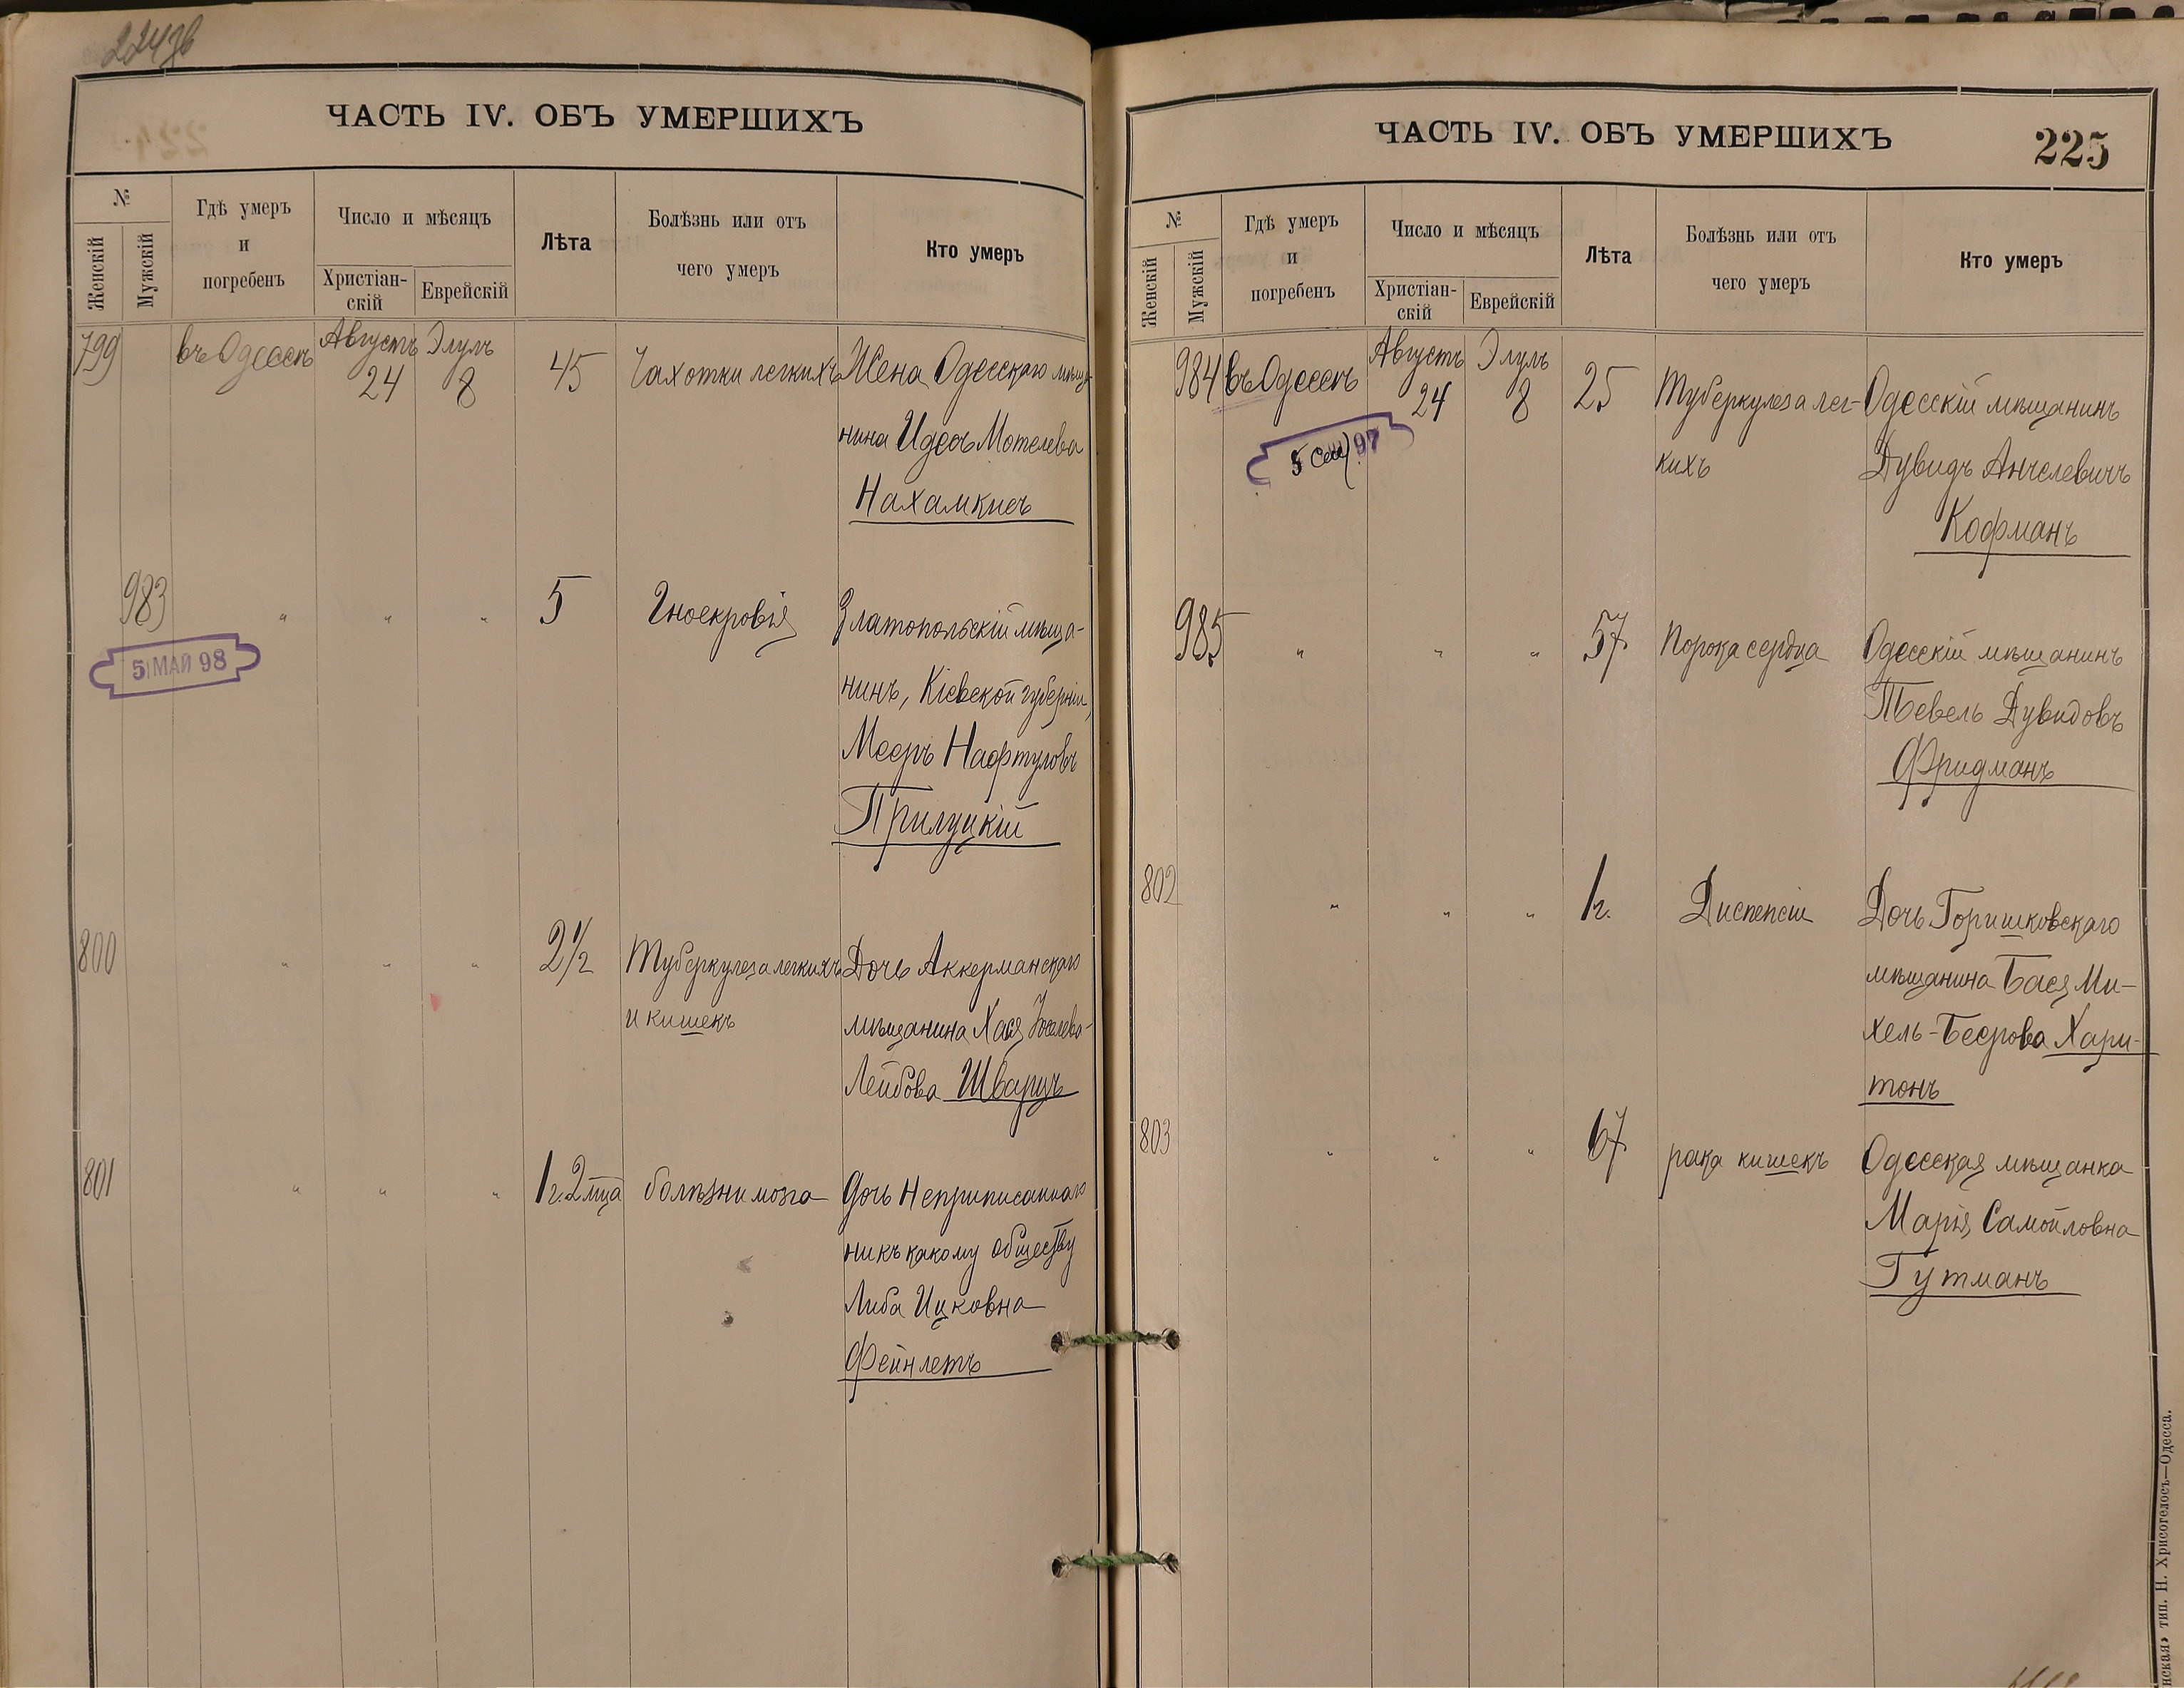 ЧАСТЬ IV. ОБЪ УМЕРШИХЪ
№
Женскій
Мужскій
Гдѣ умеръ
и
погребенъ
Число и мѣсяцъ
Христіан-
скій
Еврейскій
Лѣта
Болѣзнь или отъ
чего умеръ
Кто умеръ
799 въ Одессѣ Августъ 24 Элулъ 8 45 Чахотки легкихъ Жена Одесскаго мѣща-
нина Идесъ Мотелева
Нахамкисъ
983 " " " 5 Гноекровія Златопольскій мѣща-
5 МАЙ 98
нинъ, Кіевской губерніи,
Мееръ Нафтуловъ
Прилуцкій
800 " " " 2 1/2 Туберкулеза легкихъ Дочь Аккерманскаго
и кишекъ мѣщанина Хася
Лейбова Шварцъ
801 " " " 1 г. 2 мца болѣзни мозга дочь Неприписаннаго
ни къ какому обществу
Либа Ицковна
Фейнлетъ
ЧАСТЬ IV. ОБЪ УМЕРШИХЪ
225
№
Женскій
Мужскій
Гдѣ умеръ
и
погребенъ
Число и мѣсяцъ
Христіан-
скій
Еврейскій
Лѣта
Болѣзнь или отъ
чего умеръ
Кто умеръ
984 въ Одессѣ Августъ 24 Элулъ 8 25 Туберкулеза лег- Одесскій мѣщанинъ
5 Сен 97
кихъ Дувидъ Анчелевичъ
Кофманъ
985 " " " 57 Порока сердца Одесскій мѣщанинъ
Тевель Дувидовъ
Фридманъ
802 " " " 1 г. Диспепсіи Дочь Горишковскаго
мѣщанина Бася Ми-
хель-Беерова Хари-
тонъ
803 " " " 67 рака кишекъ Одесская мѣщанка
Марія Самойловна
Гутманъ
тип. Н. Хрисогелосъ—Одесса.